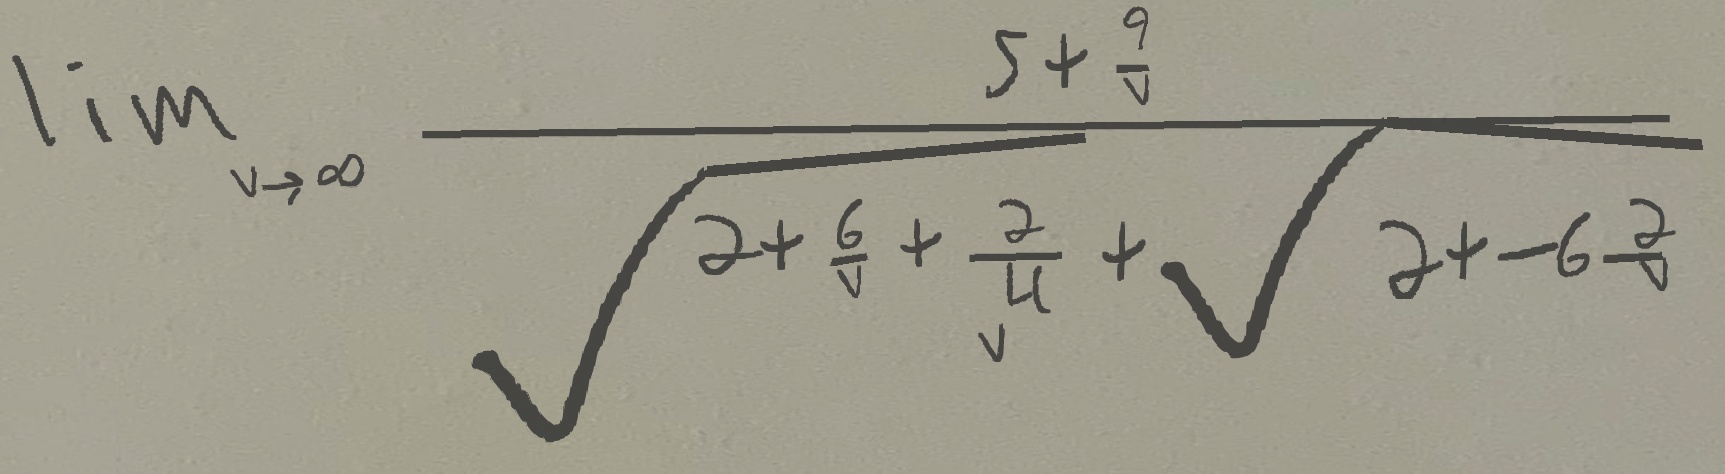 \lim_{v \to \infty} \frac{5 + \frac{9}{v}}{\sqrt{2 + \frac{6}{v} + \frac{2}{v^{4}}} + \sqrt{2 + -6\frac{2}{v}}}